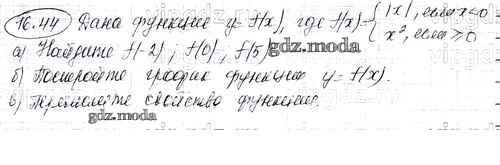 16.44) Дана функция y=f(x), где f(x)={|x|, если x<0
x², если x≥0
а) Найдите f(-2); f(0); f(5)
б) Постройте график функции y=f(x).
в) Перечислите свойства функции.
gdz.moda
gdz.moda
gdz.moda